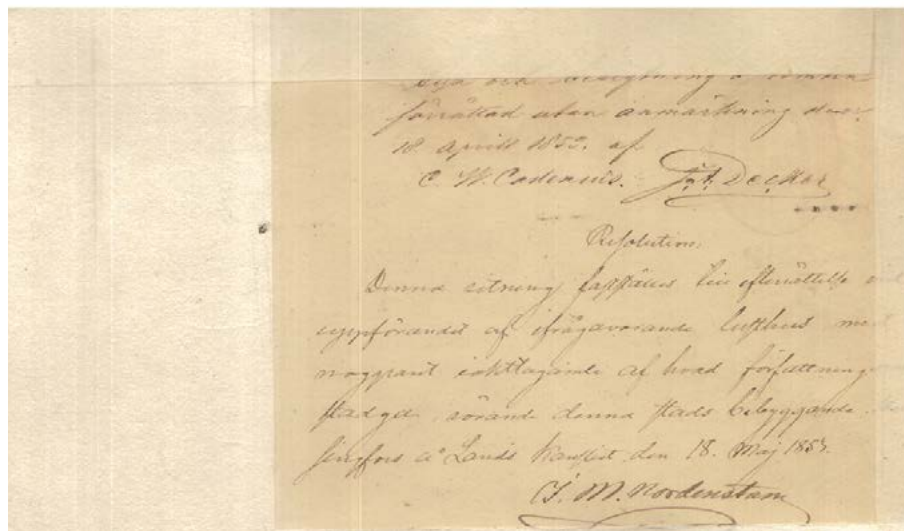 Syn och besigtning å tomten
förrättad utan anmärkning den
18 Aprill 1853. af
C. W. Cadenius. Decker
Resolution.
Denna ritning fastställes till efterrättelse vid
uppförandet af ifrågavarande lusthus med
noggrant iakttagande af hvad författningar
stadga rörande denna stads bebyggande.
singfors å Lands Kansliet den 18. Maj 1853.
J. M. Nordenstam